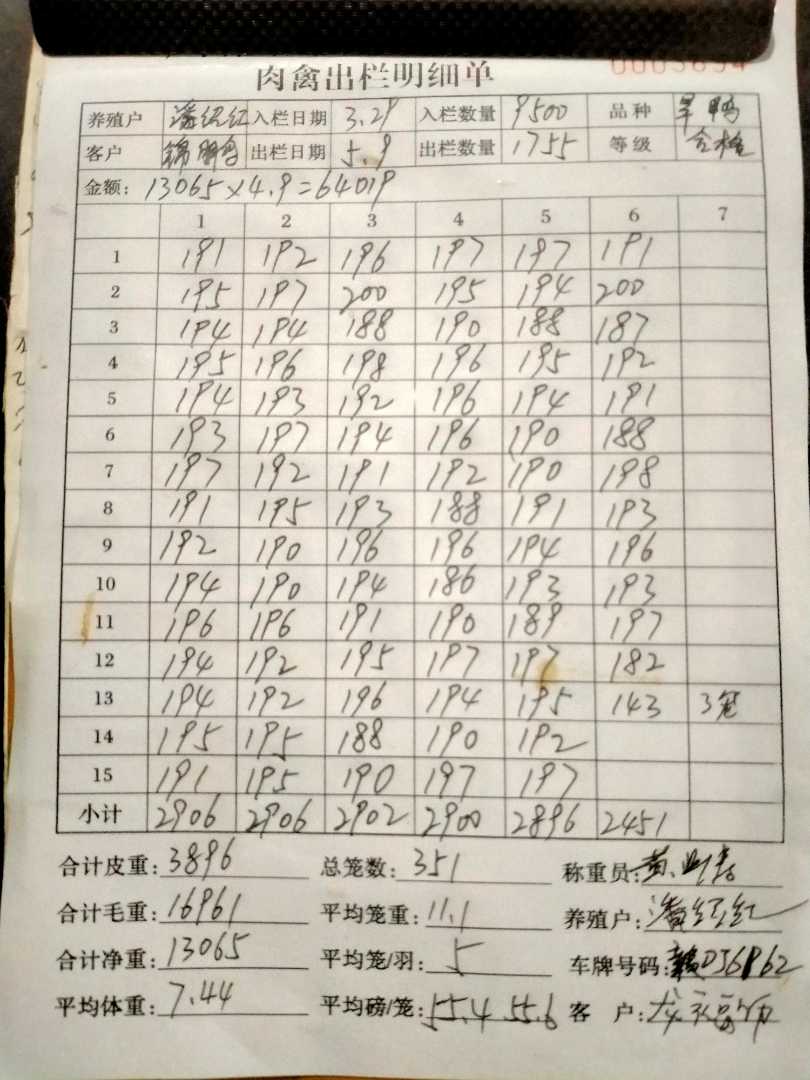 肉禽出栏明细单
养殖户 潘纪红 入栏日期 3.29 入栏数量 9500 品种 旱鸭
客户 出栏日期 5.9 出栏数量 1755 等级 合格
金额: 13065×4.9=64019
1 2 3 4 5 6 7
1 191 192 196 197 197 191
2 195 197 200 195 194 200
3 194 194 188 190 188 187
4 195 196 198 196 195 192
5 194 193 192 196 194 191
6 193 197 194 196 190 188
7 197 192 191 192 190 198
8 191 195 193 188 191 193
9 192 190 196 196 194 196
10 194 190 194 186 193 193
11 196 196 191 190 189 197
12 194 192 195 197 197 182
13 194 192 196 194 195 143 3笼
14 195 195 188 190 192
15 191 195 190 197 197
小计 2906 2906 2902 2900 2896 2451
合计皮重: 3896 总笼数: 351 称重员:
合计毛重: 16961 平均笼重: 11.1 养殖户: 潘纪红
合计净重: 13065 平均笼/羽: 5 车牌号码: 赣D56862
平均体重: 7.44 平均磅/笼: 55.4 55.6 客 户: